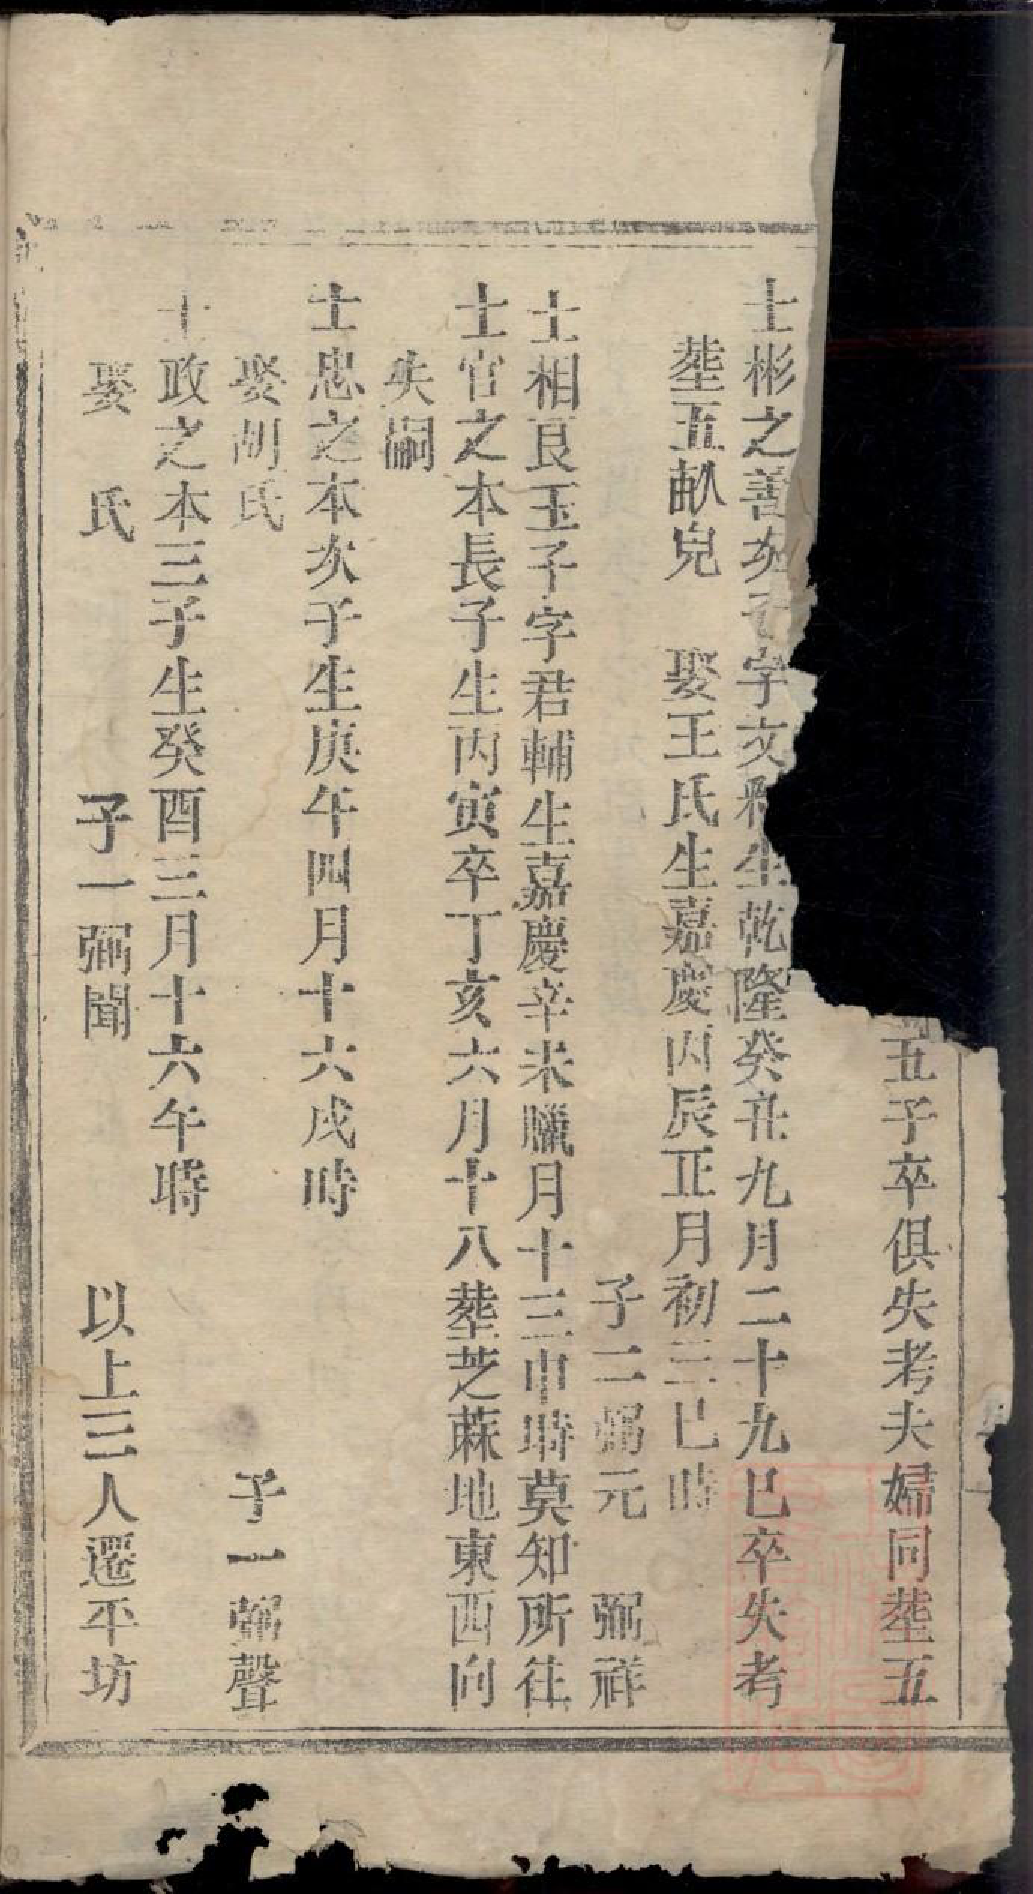 五子卒俱失考夫婦同塟五
士彬之善次子字文彩生乾隆癸丑九月二十九巳卒失考
塟五畝皃　娶王氏生嘉慶丙辰正月初三巳時
子二弼元　弼祥
士相艮玉子字君輔生嘉慶辛未臘月十三申時莫知所往
士官之本長子生丙寅卒丁亥六月十八塟芝蔴地東西向
失嗣
士忠之本次子生庚午四月十六戌時
娶胡氏　子一弼聲
士政之本三子生癸酉三月十六午時
娶　氏　子一弼聞　以上三人遷平坊